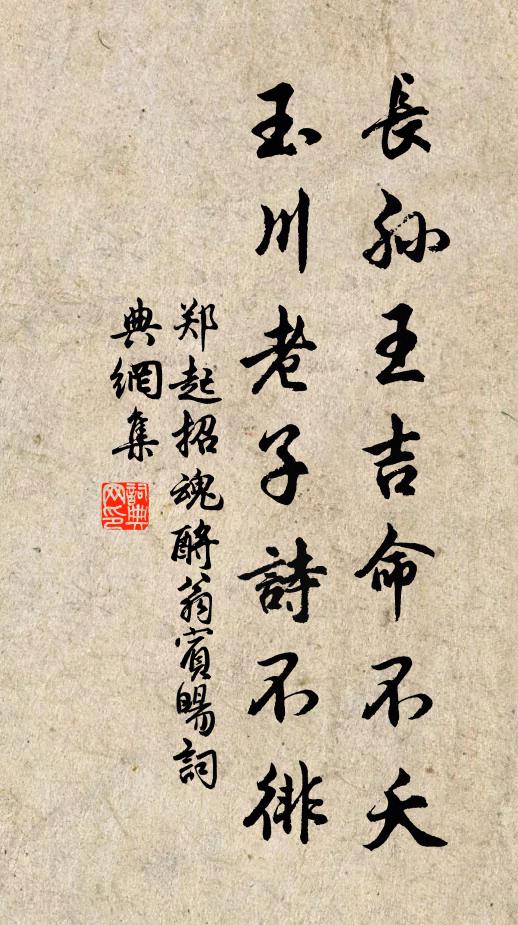 長孫王吉命不夭
玉川老子詩不徘
郑起招魂酹翁賓暘詞
典網集
詞典
网印